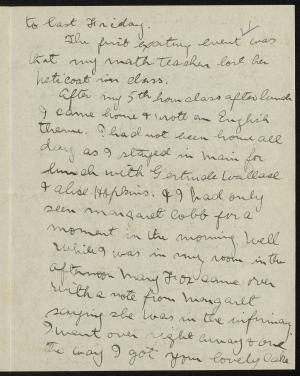 to last Friday.
The first exciting event was
that my math teacher lost her
petticoat in class.
After my 5th hour class after lunch
I came home & wrote an English
theme. I had not been home all
day as I stayed in Main for
lunch with Gertrude Wallace
& Alice Hopkins. & I had only
seen Margaret Cobb for a
moment in the morning. Well
while I was in my room in the
afternoon Mary Fox came over
with a note from Margaret
saying she was in the infirmary
I went over right away & on
the way I got your lovely cake